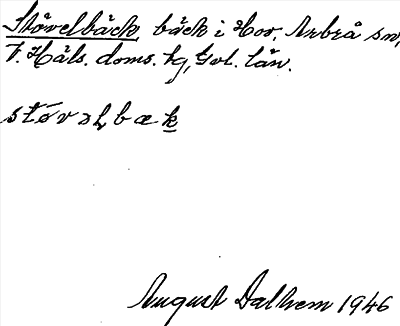 Stövelbäck, bäck i Hov, Arbrå sn,
V. Häls. doms. tg, Gvl. län.
støvəlbæk
August Dalhem 1946